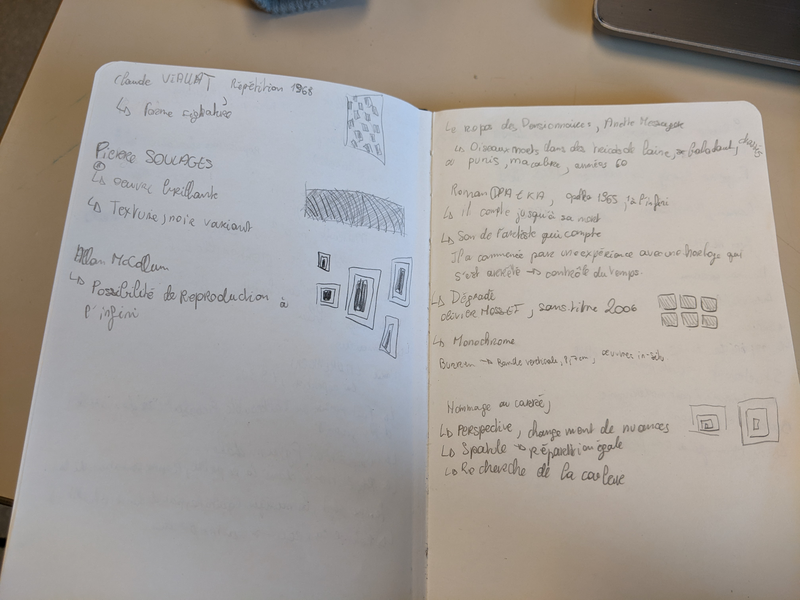 Claude VIALLAT Répétition 1968
↳ Forme
Pierre SOULAGES
↳ oeuvre brillante
↳ Texture, noir variant
Allan McCollum
↳ Possibilité de Reproduction à
l'infini
Le repos des Pensionnaires, Anette Messager
↳ Oiseaux morts dans des tricots de laine,
punis, macabre, années 60
Roman OPALKA, opalka 1965, 1 à l'infini
↳ il compte jusqu'à sa mort
↳ Son de l'artiste qui compte
Il a commencé par une expérience avec une horloge qui
s'est arrêtée → contrôle du temps.
↳ Dégradé
olivier MOSSET, sans titre 2006
↳ Monochrome
Buren → Bande verticale, 8,7cm, oeuvres in-situ
Hommage au carré,
↳ Perspective, changement de nuances
↳ Spatule → répartition égale
↳ Recherche de la couleur